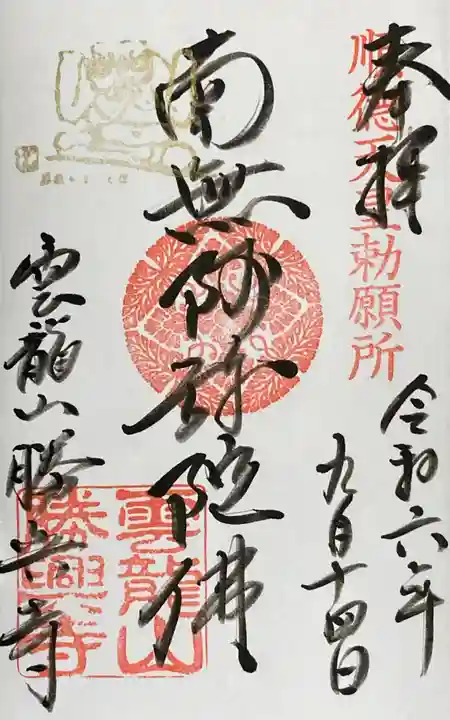 奉拝
順徳天皇勅願所
令和六年
九月十四日
南無阿弥陀佛
雲龍山
勝興寺
雲龍山勝興寺